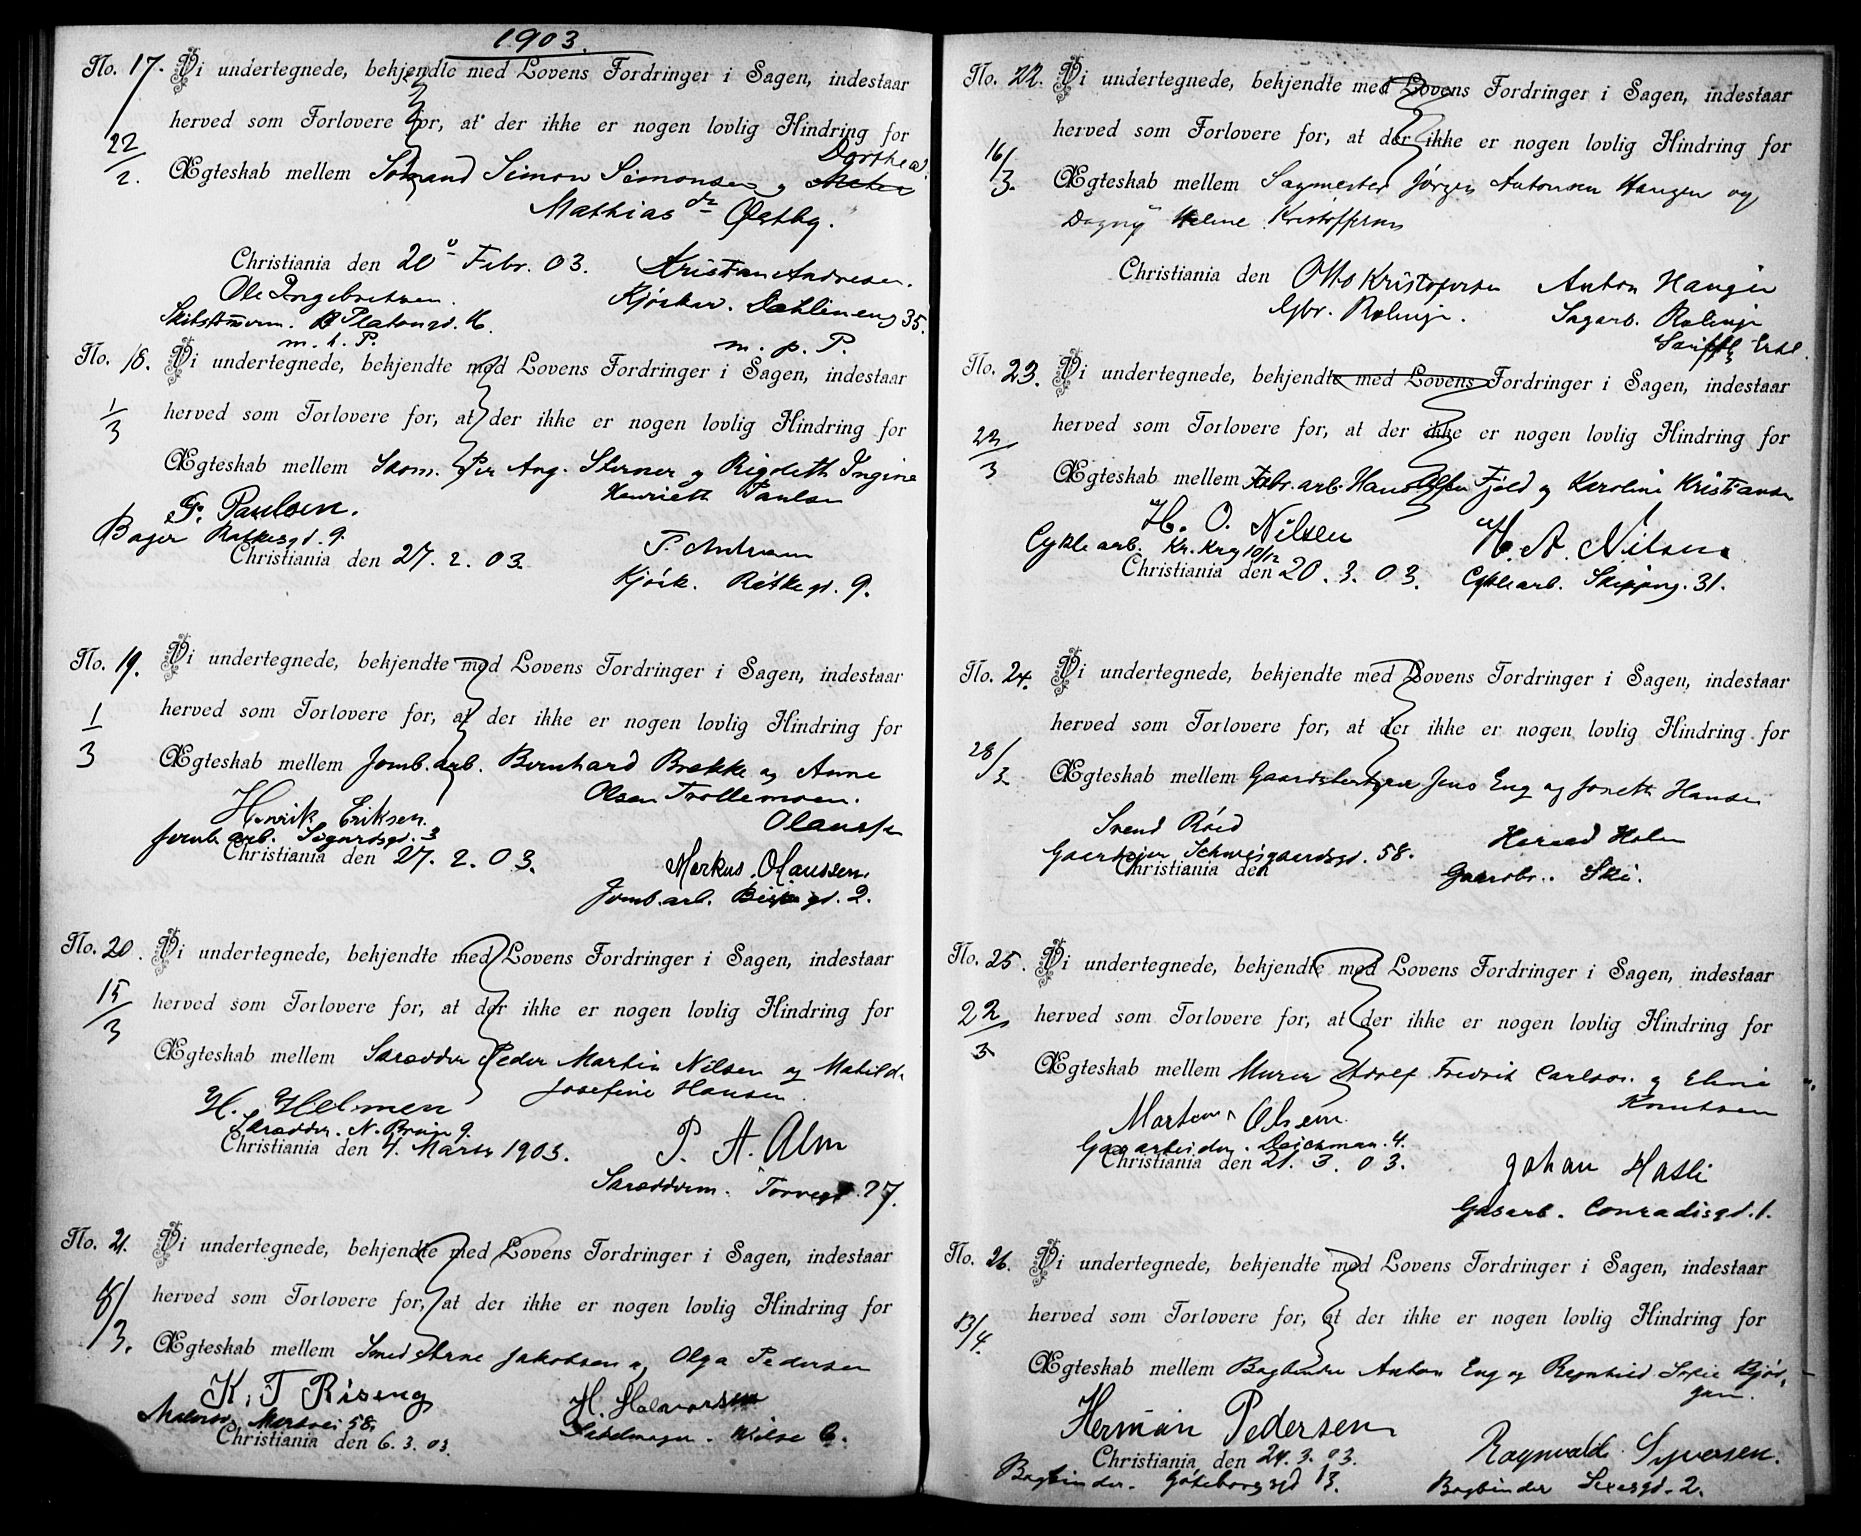 1903.
No. 17. Vi undertegnede, bekjendte med Lovens Fordringer i Sagen, indestaar
herved som Forlovere for, at der ikke er nogen lovlig Hindring for
22/2. Dorthea
Ægteskab mellem Sømand Simon Simonsen og
Mathiasdr Østby.
Christiania den 20 Febr. 03. Kristian Andresen.
Ole Ingebretsen. Kjørskar. Dahleneng 35.
Platous. 16.
m. p. P. m. p. P.
No. 18. Vi undertegnede, bekjendte med Lovens Fordringer i Sagen, indestaar
1/3 herved som Forlovere for, at der ikke er nogen lovlig Hindring for
Ægteskab mellem Skom. Per Aug. Sterner og Rigoleth Ingine
Henrieth Paulsen
F. Paulsen.
Bager Ratkesgd. 9.
Christiania den 27. 2. 03. P. Andresen
Kjørsk. Ratkegd. 9.
No. 19. Vi undertegnede, bekjendte med Lovens Fordringer i Sagen, indestaar
1/3 herved som Forlovere for, at der ikke er nogen lovlig Hindring for
Ægteskab mellem Jernb. arb. Bernhard Brekke og Anne
Olsen Trollemoen.
Henrik Eriksen.
Jernb. arb. Sigurdsgd. 3
Christiania den 27. 2. 03. Markus Olaussen.
Jernb. arb. Bispegd. 2.
No. 20. Vi undertegnede, bekjendte med Lovens Fordringer i Sagen, indestaar
15/3 herved som Forlovere for, at der ikke er nogen lovlig Hindring for
Ægteskab mellem Skrædder Peder Martin Nilsen og Matilde
Josefine Hansen.
H. Helmen
Skrædder. N. 9.
Christiania den 4. Marts 1903. P. A. Alm
Skrædderm. Torvegd. 27.
No. 21. Vi undertegnede, bekjendte med Lovens Fordringer i Sagen, indestaar
8/3. herved som Forlovere for, at der ikke er nogen lovlig Hindring for
Ægteskab mellem Smed Arne Jakobsen og Olga Pedersen
K. T Riseng H. Halvorsen
58.
Christiania den 6. 3. 03. Sadelmager.
No. 22. Vi undertegnede, bekjendte med Lovens Fordringer i Sagen, indestaar
herved som Forlovere for, at der ikke er nogen lovlig Hindring for
16/3. Ægteskab mellem Sagmester Jørgen Antonsen Haugen og
Dagny Helene Kristoffersen
Christiania den Otto Kristofersen Anton Haugen
Gbr. Rælinge. Sagarb. Rælinge
No. 23. Vi undertegnede, bekjendte med Lovens Fordringer i Sagen, indestaar
22/3 herved som Forlovere for, at der ikke er nogen lovlig Hindring for
Ægteskab mellem Fabr. arb. Hans Olsen Fjeld og Karoline Kristiansen
H. O. Nilsen H. A. Nilsen
Cyklearb. Kr. Krg 10/12
Christiania den 20. 3. 03. Cyklearb. Skipperg. 31.
No. 24. Vi undertegnede, bekjendte med Lovens Fordringer i Sagen, indestaar
herved som Forlovere for, at der ikke er nogen lovlig Hindring for
28/3 Ægteskab mellem Gaardsbestyrer Jens Eng og Joneth Hansen
Svend Røed
Gaardejer Schweigaardsgd. 58. Harald Holm
Christiania den Gaardbr. Ski.
No. 25. Vi undertegnede, bekjendte med Lovens Fordringer i Sagen, indestaar
22/3 herved som Forlovere for, at der ikke er nogen lovlig Hindring for
Ægteskab mellem Murer Adolf Fredrik Carlson. og Eline
Knutsen
Martin Olsen.
Gasarbeider. Deichman. 4.
Christiania den 21. 3. 03. Johan Hasli
Gasarb. Conradisgd. 1.
No. 26. Vi undertegnede, bekjendte med Lovens Fordringer i Sagen, indestaar
13/4. herved som Forlovere for, at der ikke er nogen lovlig Hindring for
Ægteskab mellem Bogbinder Anton Eng og Ragnhild Sofie Bjør-
gum.
Herman Pedersen
Christiania, den 24. 3. 03. Ragnvald Syversen.
Bogbinder. Gøteborggd 13. Bogbinder Sexesgd. 2.